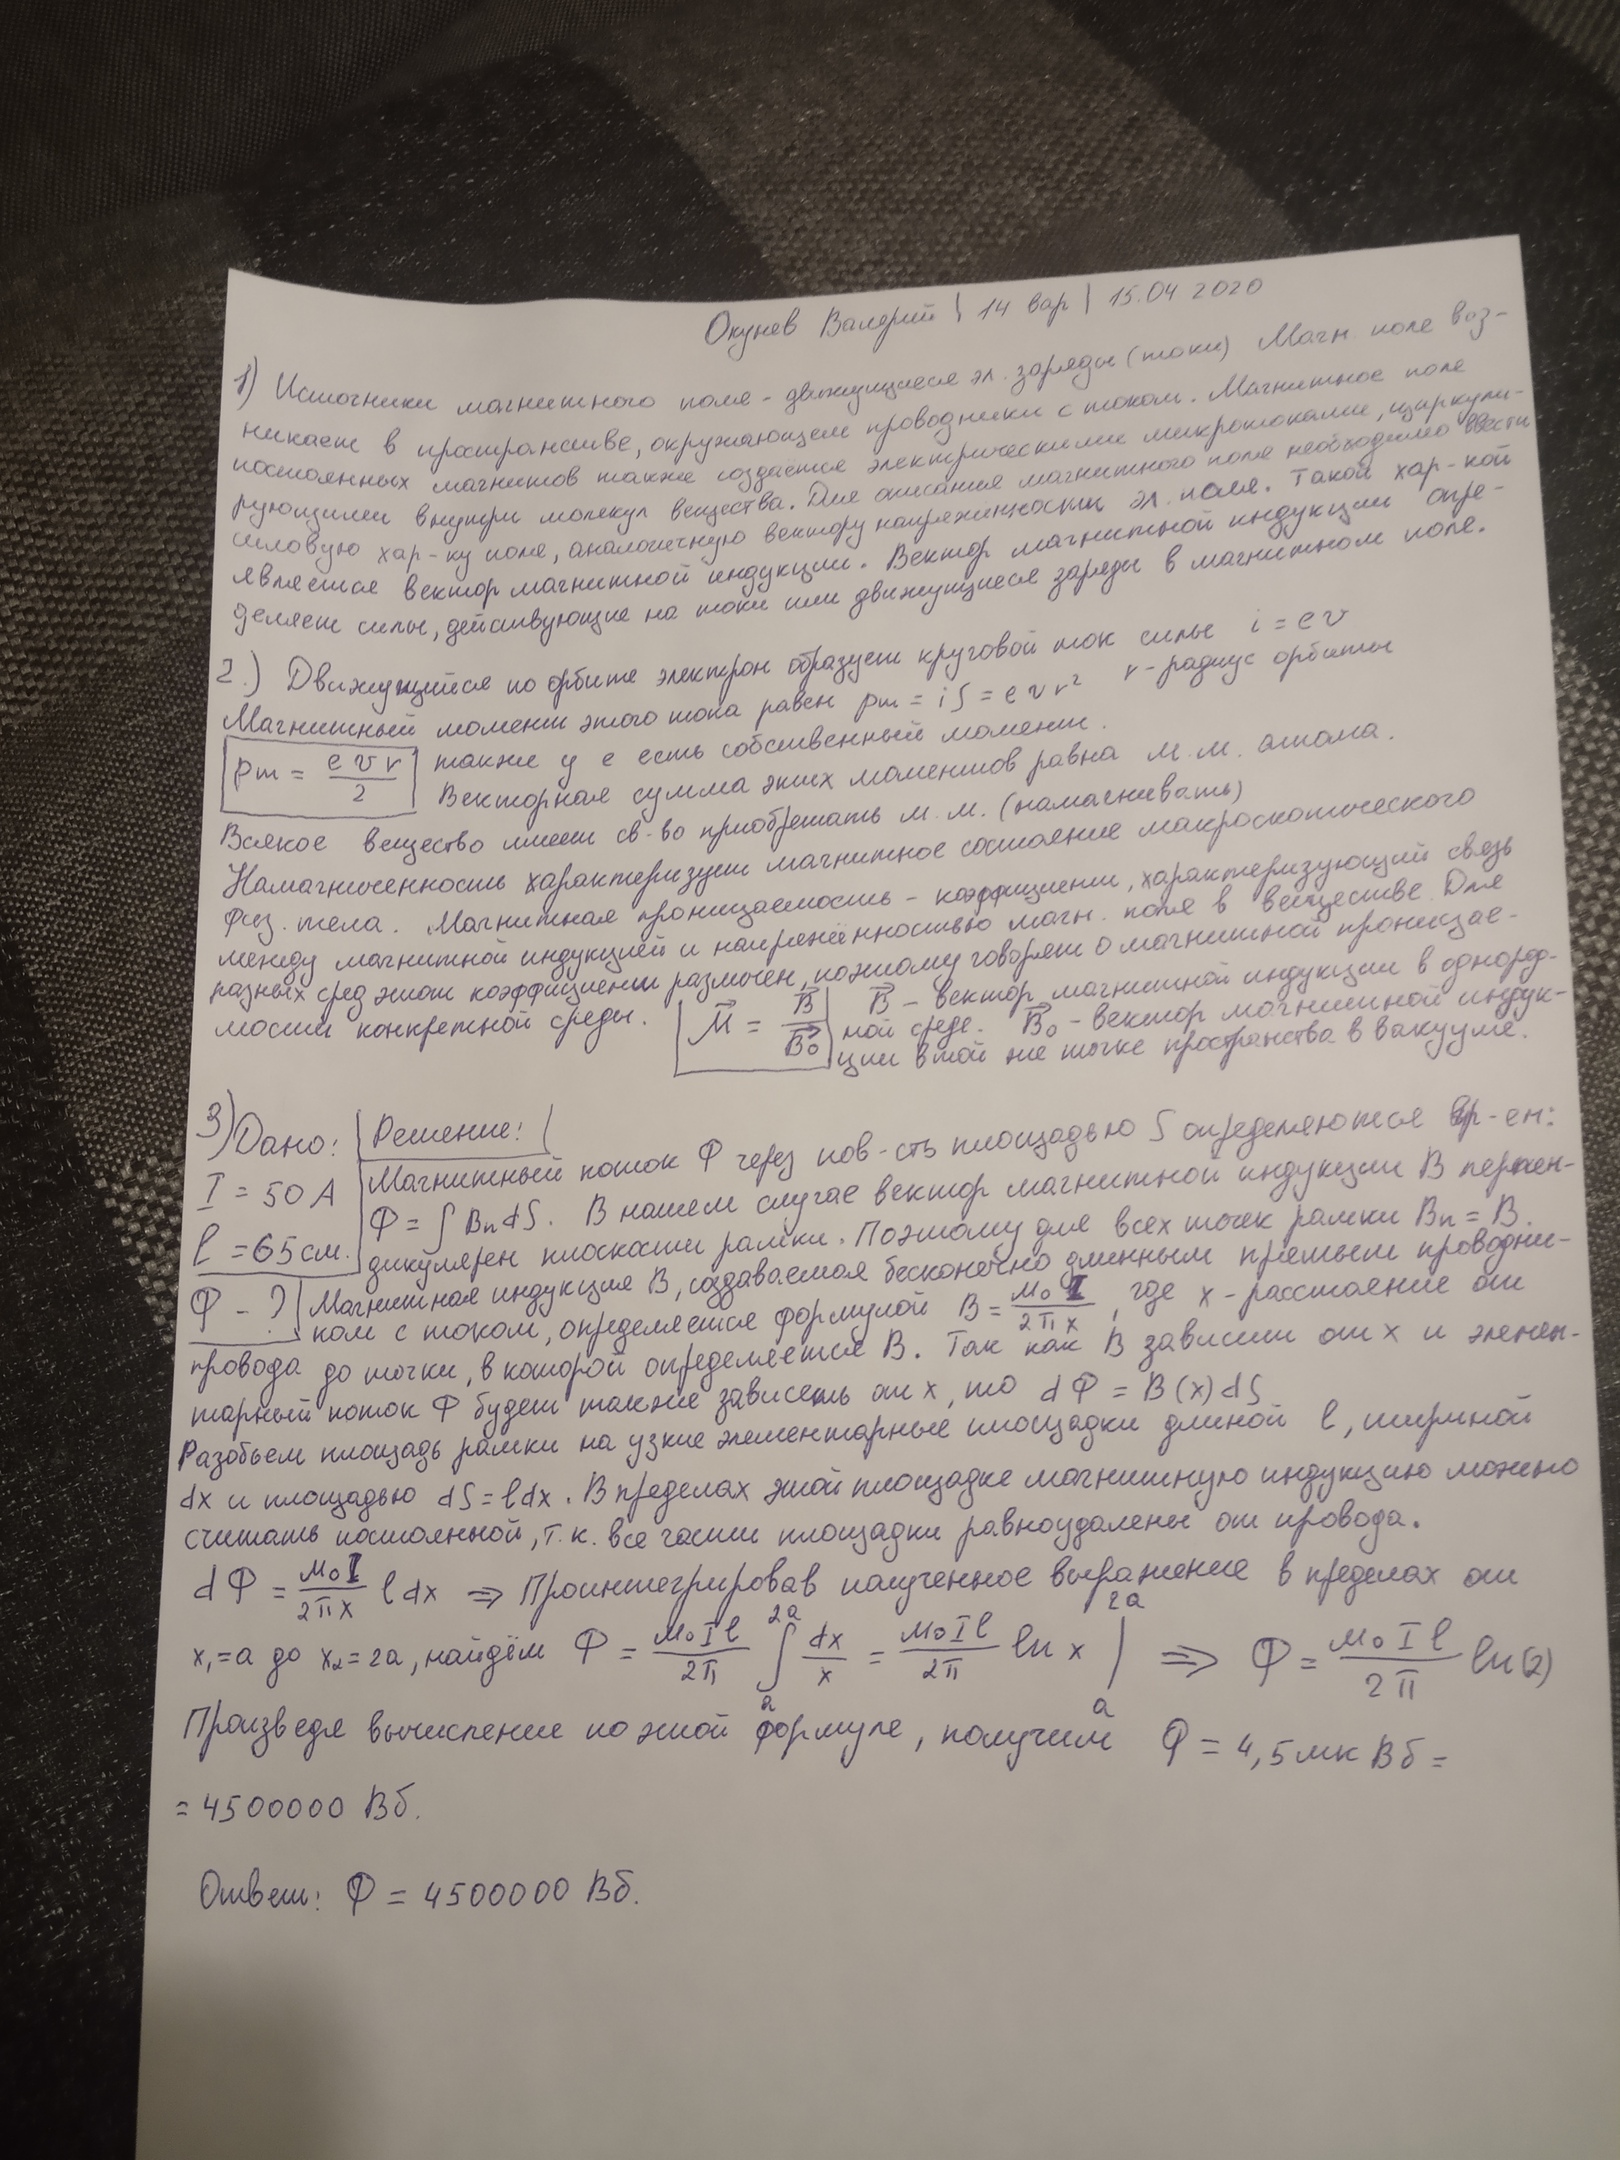 Окунев Валерий | 14 вар | 15.04 2020
1) Источники магнитного поля - движущиеся эл. заряды (токи) Магн. поле воз-
никает в пространстве, окружающем проводники с током. Магнитное поле
постоянных магнитов также создаётся электрическими микротоками, циркули-
рующими внутри молекул вещества. Для описания магнитного поля необходимо ввести
силовую хар-ку поля, аналогичную вектору напряженности эл. поля. Такой хар-кой
является вектор магнитной индукции. Вектор магнитной индукции опре-
деляет силы, действующие на токи или движущиеся заряды в магнитном поле.
2.) Движущийся по орбите электрон образует круговой ток силы i = eν
Магнитный момент этого тока равен pm = iS = eνr² r - радиус орбиты
pm = evr/2 также у e есть собственный момент.
Векторная сумма этих моментов равна м.м. атома.
Всякое вещество имеет св-во приобретать м.м. (намагнивать)
Намагниченность характеризует магнитное состояние макроскопического
физ. тела. Магнитная проницаемость - коэффициент, характеризующий связь
между магнитной индукцией и напряжённостью магн. поля в веществе. Для
разных сред этот коэффициент различен, поэтому говорят о магнитной проницае-
мости конкретной среды. M⃗ = B⃗/B⃗₀ B⃗ - вектор магнитной индукции в однород-
ной среде. B⃗₀ - вектор магнитной индук-
ции в той же точке пространства в вакууме.
3) Дано: Решение:
I = 50 А
l = 65 см.
Ф - ?
Магнитный поток Ф через пов-сть площадью S определяются -ем:
Ф = ∫ Bn dS. В нашем случае вектор магнитной индукции B перпен-
дикулярен плоскости рамки. Поэтому для всех точек рамки Bn = B.
Магнитная индукция B, создаваемая бесконечно длинным прямым проводни-
ком с током, определяется формулой B = μ₀I/2πx, где x - расстояние от
провода до точки, в которой определяется B. Так как B зависит от x и элемен-
тарный поток Ф будет также зависеть от x, то dФ = B(x)dS
Разобьем площадь рамки на узкие элементарные площадки длиной l, шириной
dx и площадью dS = ldx. В пределах этой площадке магнитную индукцию можно
считать постоянной, т.к. все части площадки равноудалены от провода.
dФ = μ₀I/2πx ldx => Проинтегрировав полученное выражение в пределах от
x₁=a до x₂=2a, найдём Ф = μ₀Il/2π ∫ₐ²ᵃ dx/x = μ₀Il/2π ln x |ₐ²ᵃ => Ф = μ₀Il/2π ln(2)
Произведя вычисление по этой формуле, получим Ф = 4,5 мкВб =
= 4500000 Вб.
Ответ: Ф = 4500000 Вб.